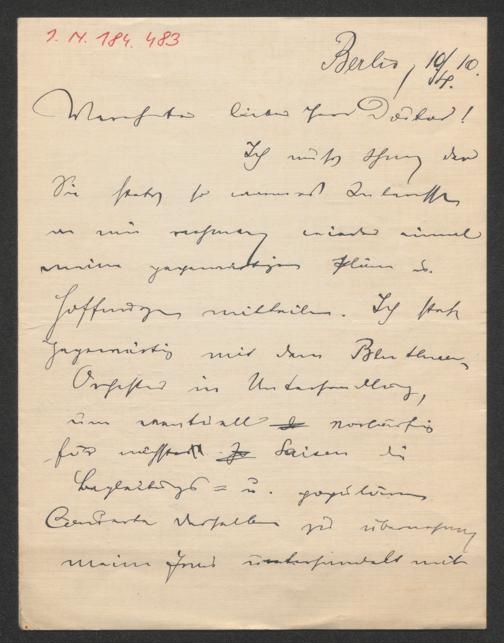 J. N. 184.483
Berlin, 10/10.
14.
Verehrter lieber Herr Doctor!
Ich muß Ihnen, der
Sie stets so warmes Interesse
an mir nehmen, wieder einmal
meine gegenwärtigen Pläne u.
Hoffnungen mitteilen. Ich stehe
gegenwärtig mit dem Blüthner-
Orchester in Unterhandlung,
um eventuell vorläufig
für nächste Saison die
Begleitungs= u. populären
Concerte desselben zu übernehmen
meine Frau unterhandelt mit